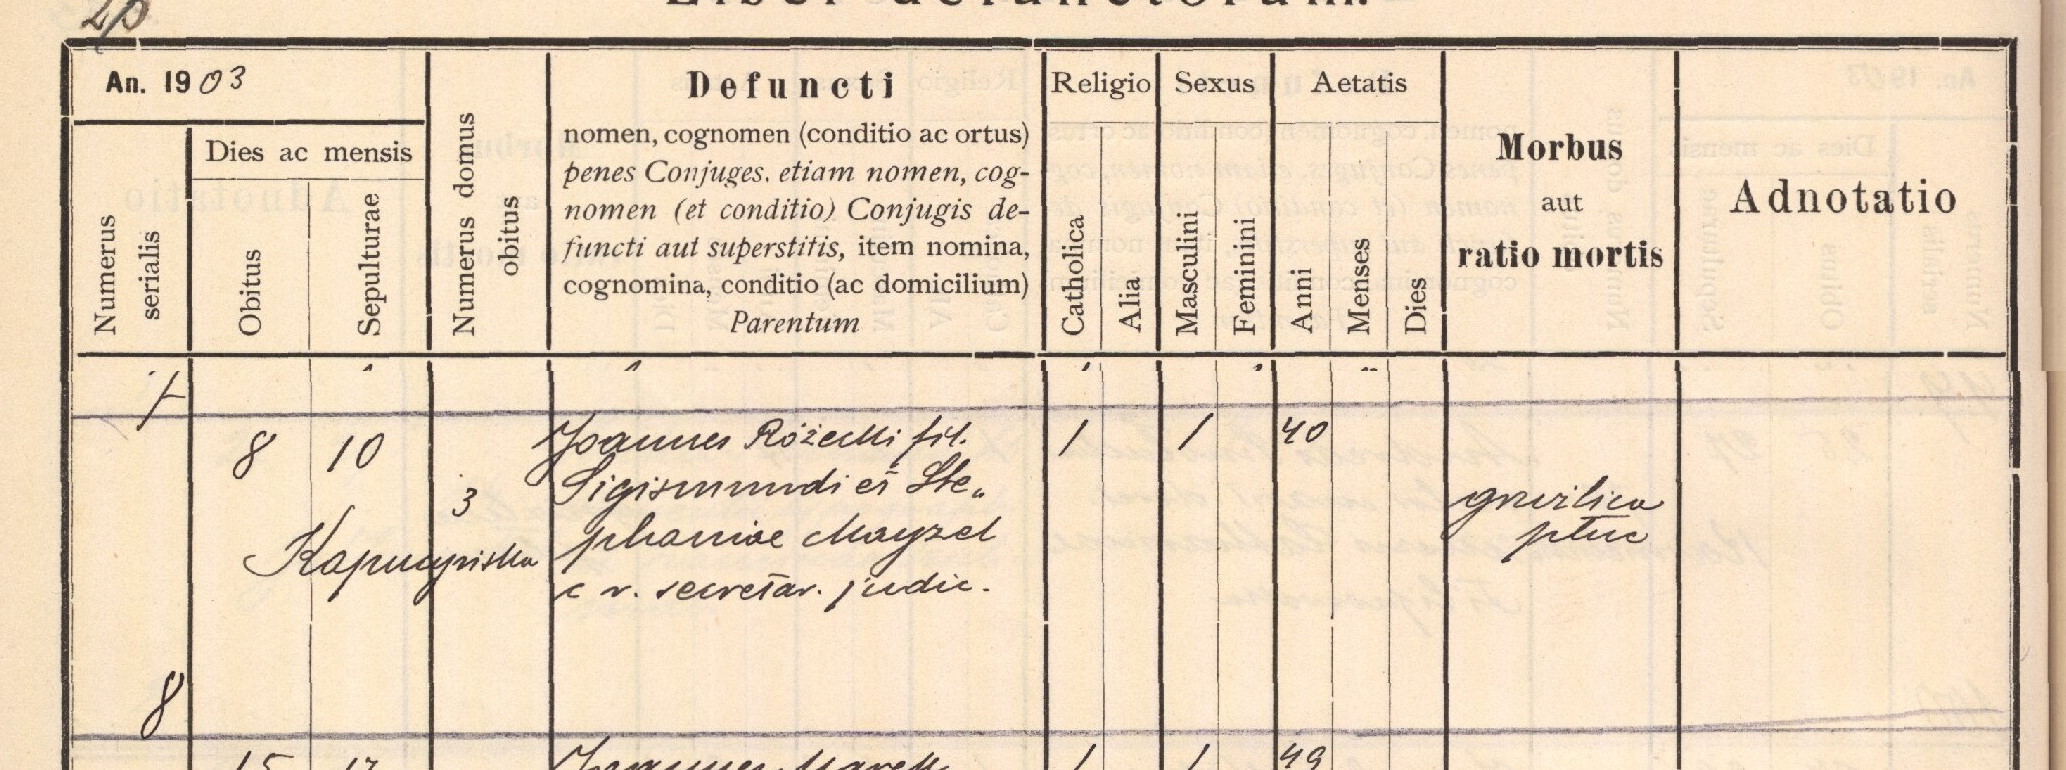 Liber defunctorum.
An. 1903
Numerus serialis
Dies ac mensis
Obitus
Sepulturae
Numerus domus obitus
Defuncti
nomen, cognomen (conditio ac ortus)
penes Conjuges. etiam nomen, cog-
nomen (et conditio) Conjugis de-
functi aut superstitis, item nomina,
cognomina, conditio (ac domicilium)
Parentum
Religio
Catholica
Alia
Sexus
Masculini
Feminini
Aetatis
Anni
Menses
Dies
Morbus
aut
ratio mortis
Adnotatio
7
8 10 Joannes Różecki fil. 1 1 40
3 Sigismundi et Ste„
Kapucyńska phaniae Mayzel
c r. secretar. judic.
8
15 17 Joannes Marek 1 1 49